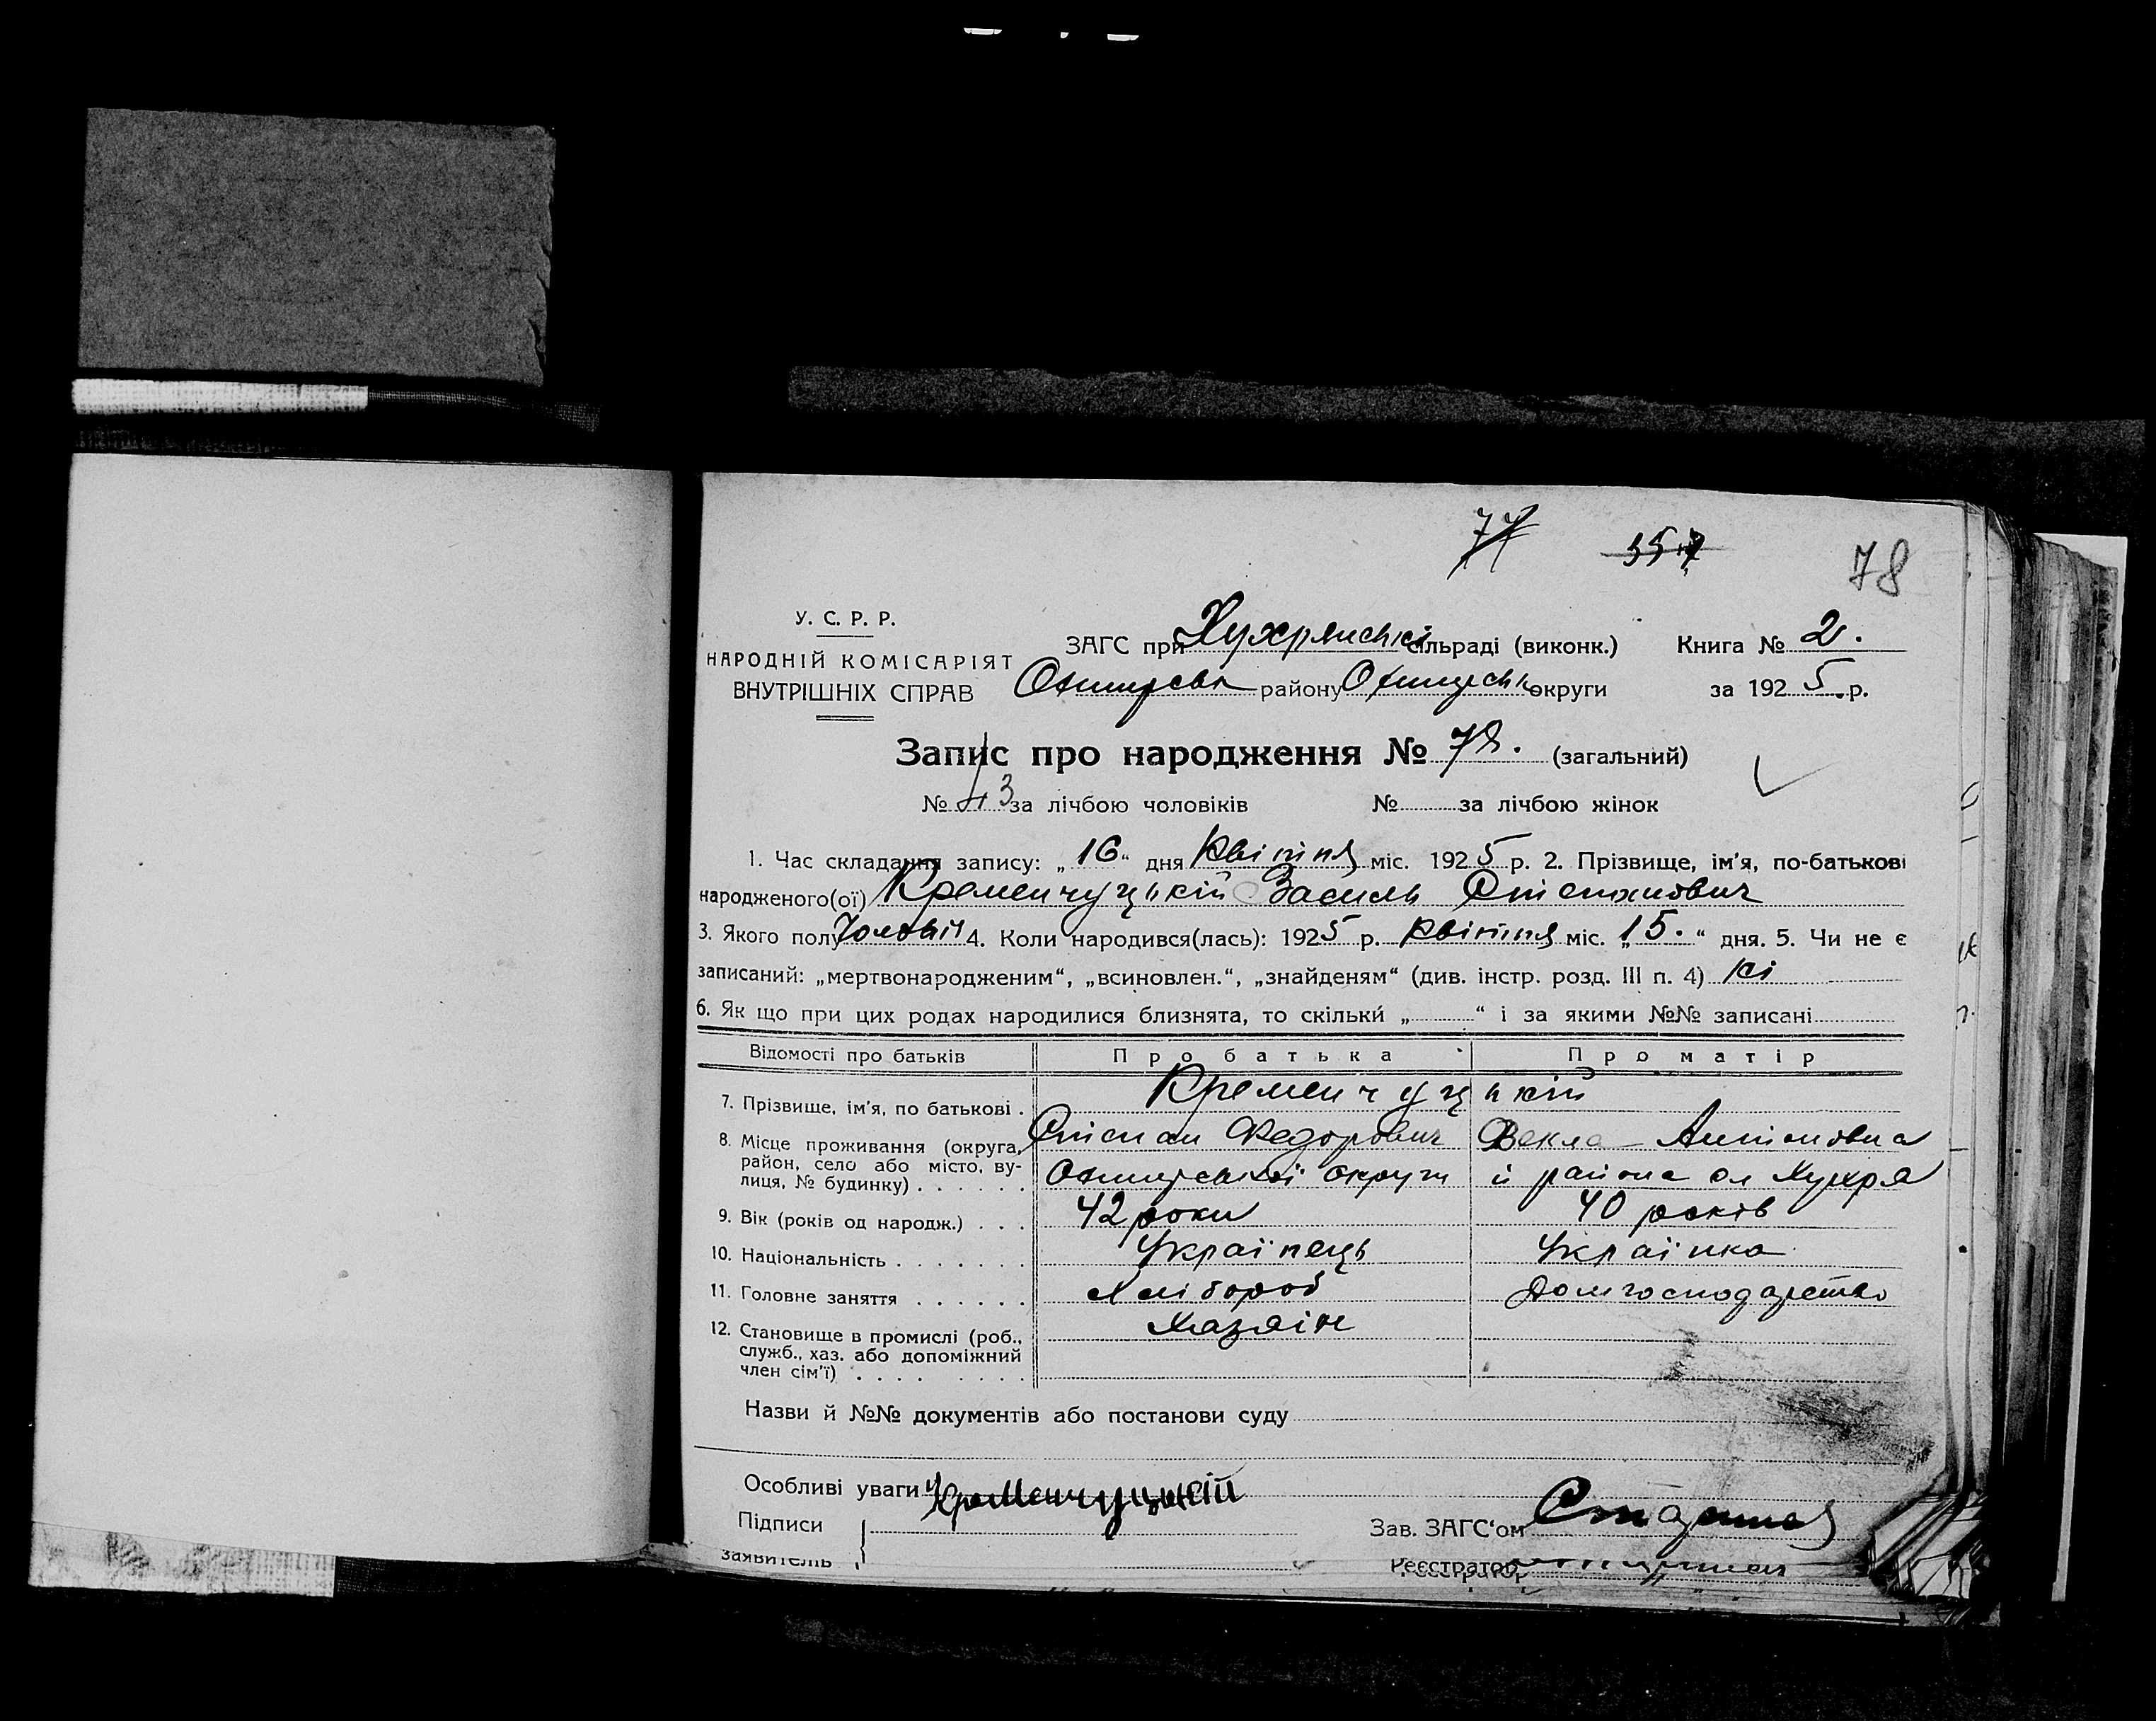 77 357 78
У. С. Р. Р.
НАРОДНІЙ КОМІСАРІЯТ
ВНУТРІШНІХ СПРАВ
ЗАГС при Хухрянській сільраді (виконк.) Книга № 2.
Охтирськ району Охтирськ округи за 1925.р.
Запис про народження № 78. (загальний)
№ 43 за лічбою чоловіків № за лічбою жінок
1. Час складання запису: „16“ дня Квітня міс. 1925 р. 2. Прізвище, ім'я, по-батькові
народженого(ої) Кременчуцькій Василь Степанович
3. Якого полу Чоловіч 4. Коли народився(лась): 1925 р. Квітня міс. „15.“ дня. 5. Чи не є
записаний: „мертвонародженим“, „всиновлен.“, „знайденям“ (див. інстр. розд. III п. 4) Ні
6. Як що при цих родах народилися близнята, то скільки „ “ і за якими №№ записані
Відомості про батьків Про батька Про матір
7. Прізвище, ім'я, по батькові . Кременчуцькій
Степан Федорович Векла Антоновна
8. Місце проживання (округа,
район, село або місто, ву-
лиця, № будинку) . . . . . . Охтирської округи й района сл Хухря
9. Вік (років од народж.) . . . 42 роки 40 років
10. Національність . . . . . . . Українець Українка
11. Головне заняття . . . . . . Хлібороб Домгосподарство
12. Становище в промислі (роб.,
служб., хаз. або допоміжний
член сім'ї) . . . . . . . . Хазяїн
Назви й №№ документів або постанови суду
Особливі уваги Кременчуцькій
Підписи
заявитель
Зав. ЗАГС'ом
Реєстратор